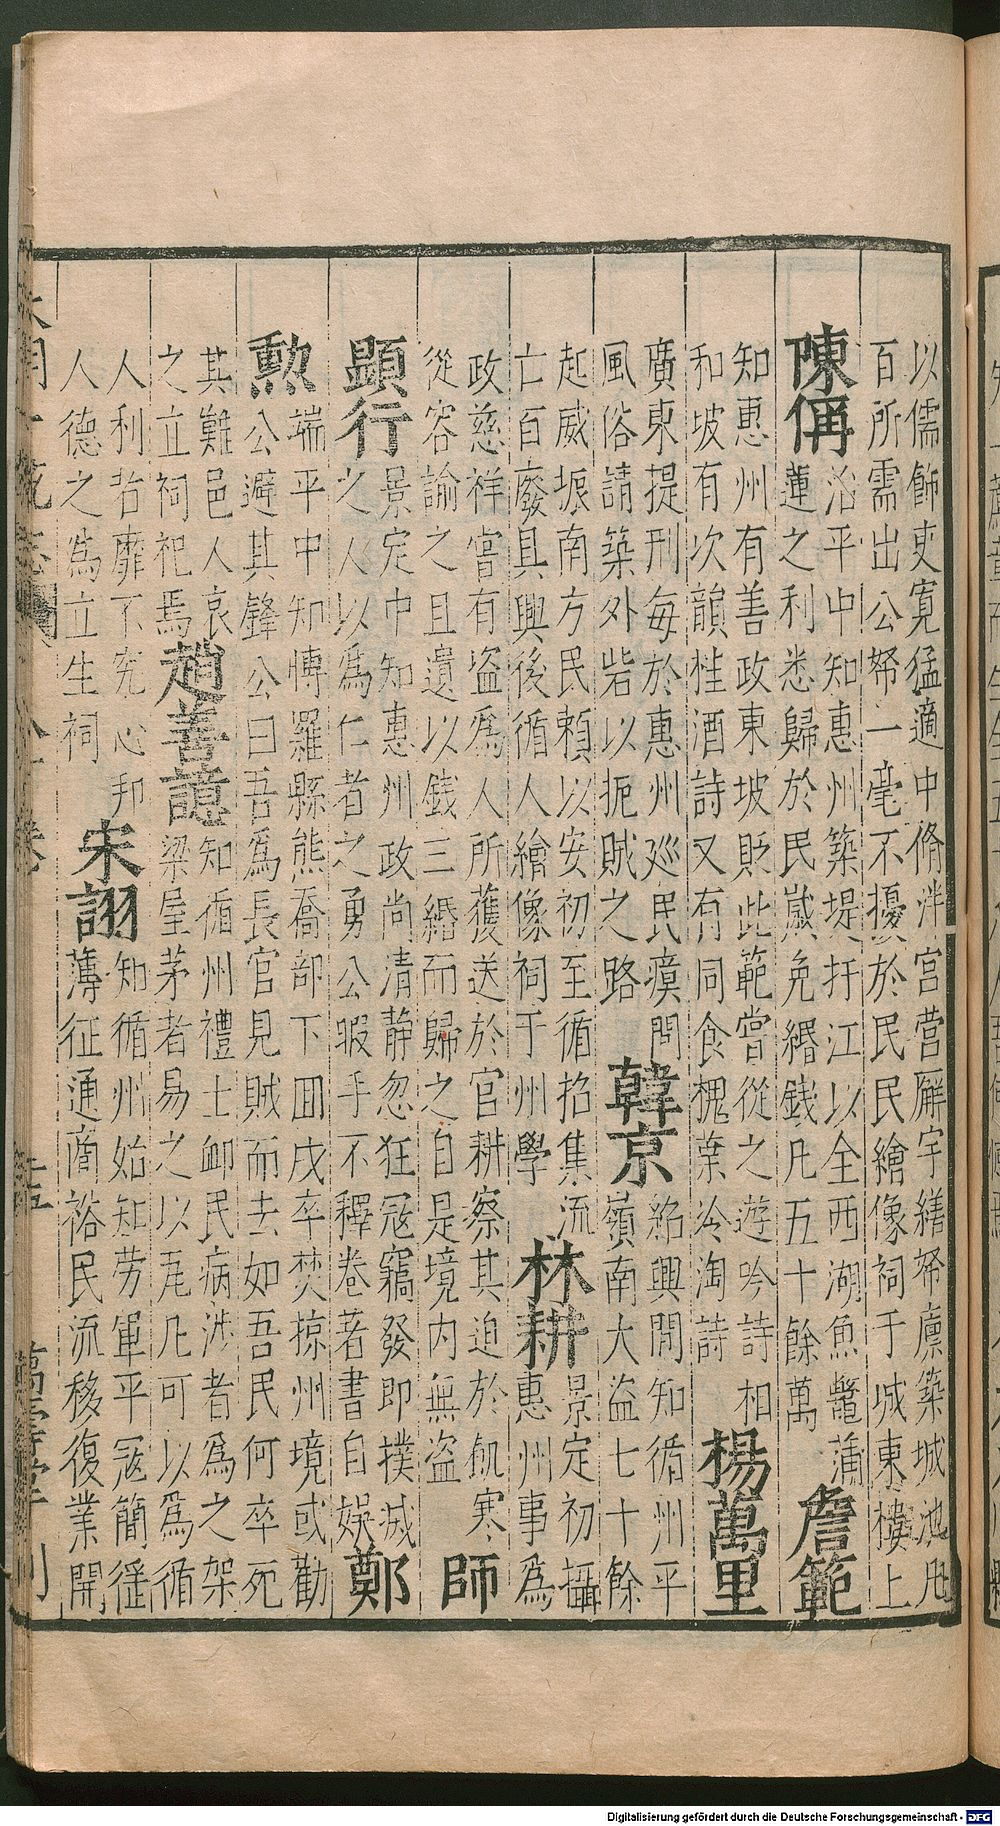 以儒飾吏寬猛適中脩泮宮營廨宇繕帑廩築城池凡
百所需出公帑一毫不擾於民民繪像祠于城東樓上
陳偁
治平中知惠州築堤扞江以全西湖魚鱉蒲
蓮之利悉歸於民歲免緡錢凡五十餘萬
詹範
知惠州有善政東坡貶此範嘗從之遊吟詩相
和坡有次韻桂酒詩又有同食槐葉冷淘詩
楊萬里
廣東提刑每於惠州巡民瘼間
風俗請築外砦以扼賊之路
韓京
紹興間知循州平
嶺南大盜七十餘
起威振南方民賴以安初至循招集流
亡百廢具興後循人繪像祠于州學
林耕
景定初攝
惠州事為
政慈祥嘗有盜為人所獲送於官耕察其迫於飢寒
從容諭之且遺以錢三緡而歸之自是境內無盜
師
顯行
景定中知惠州政尚清靜忽狂寇竊發即撲滅
之人以為仁者之勇公暇手不釋卷著書自娛
鄭
勲
端平中知博羅縣熊喬部下囬戍卒焚掠州境或勸
公避其鋒公曰吾為長官見賊而去如吾民何卒死
其難邑人哀
之立祠祀焉
趙善諠
知循州禮士卹民病涉者為之架
梁屋茅者易之以瓦凡可以為循
人利者靡不究心邦
人德之為立生祠
宋詡
知循州始知勞軍平寇簡徭
薄征通商裕民流移復業開
Digitalisierung gefördert durch die Deutsche Forschungsgemeinschaft - DFG